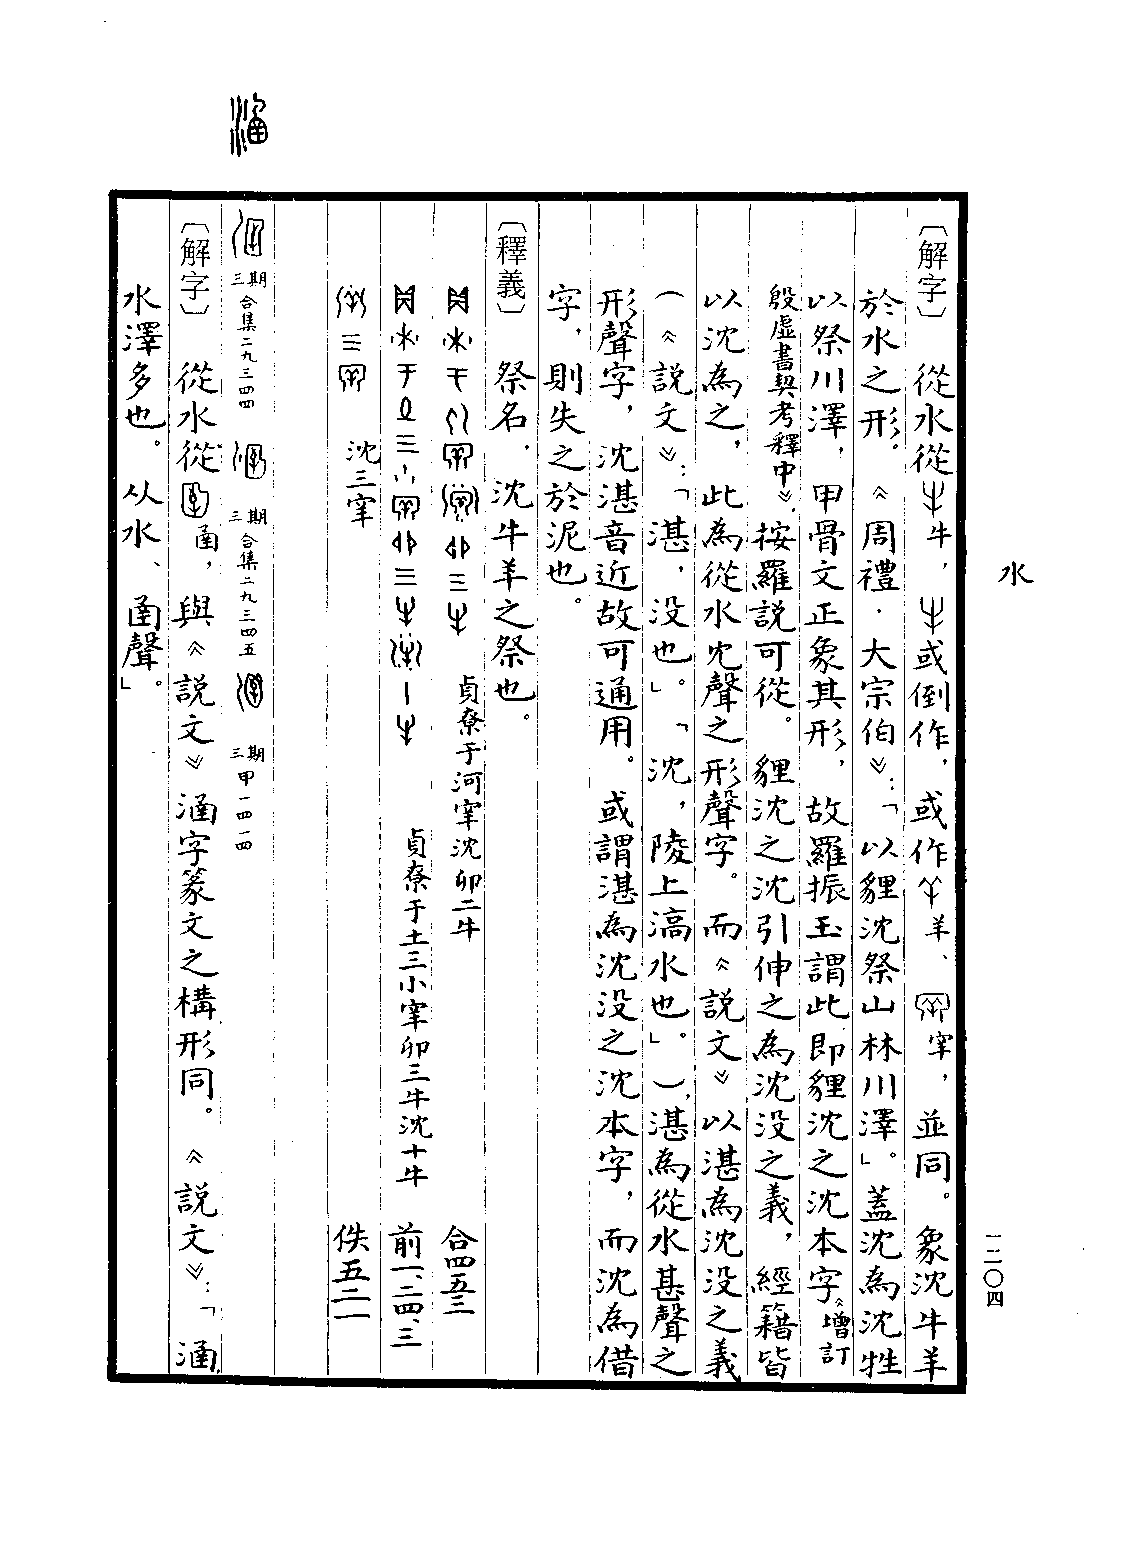 水
一二〇四
〔解字〕 從水從牛，或倒作，或作羊、𫳅，並同。象沈牛羊
於水之形。《周禮·大宗伯》：「以貍沈祭山林川澤」。蓋沈為沈牲
以祭川澤，甲骨文正象其形，故羅振玉謂此即貍沈之沈本字《增訂
殷虛書契考釋中》。按羅說可從。貍沈之沈引伸之為沈没之義，經籍皆
以沈為之，此為從水冘聲之形聲字。而《說文》以湛為沈没之義
（《說文》：「湛，没也。」「沈，陵上滈水也」。），湛為從水甚聲之
形聲字，沈湛音近故可通用。或謂湛為沈没之沈本字，而沈為借
字，則失之於泥也。
〔釋義〕 祭名，沈牛羊之祭也。
貞尞于河𫳅沈卯二牛 合四五三
貞尞于土三小𫳅卯三牛沈十牛 前一、二四、三
沈三𫳅 佚五二一
涵
三期合集二九三四四 三期合集二九三四五 三期甲一四一四
〔解字〕 從水從圅，與《說文》涵字篆文之構形同。《說文》：「涵，
水澤多也。从水、圅聲。」